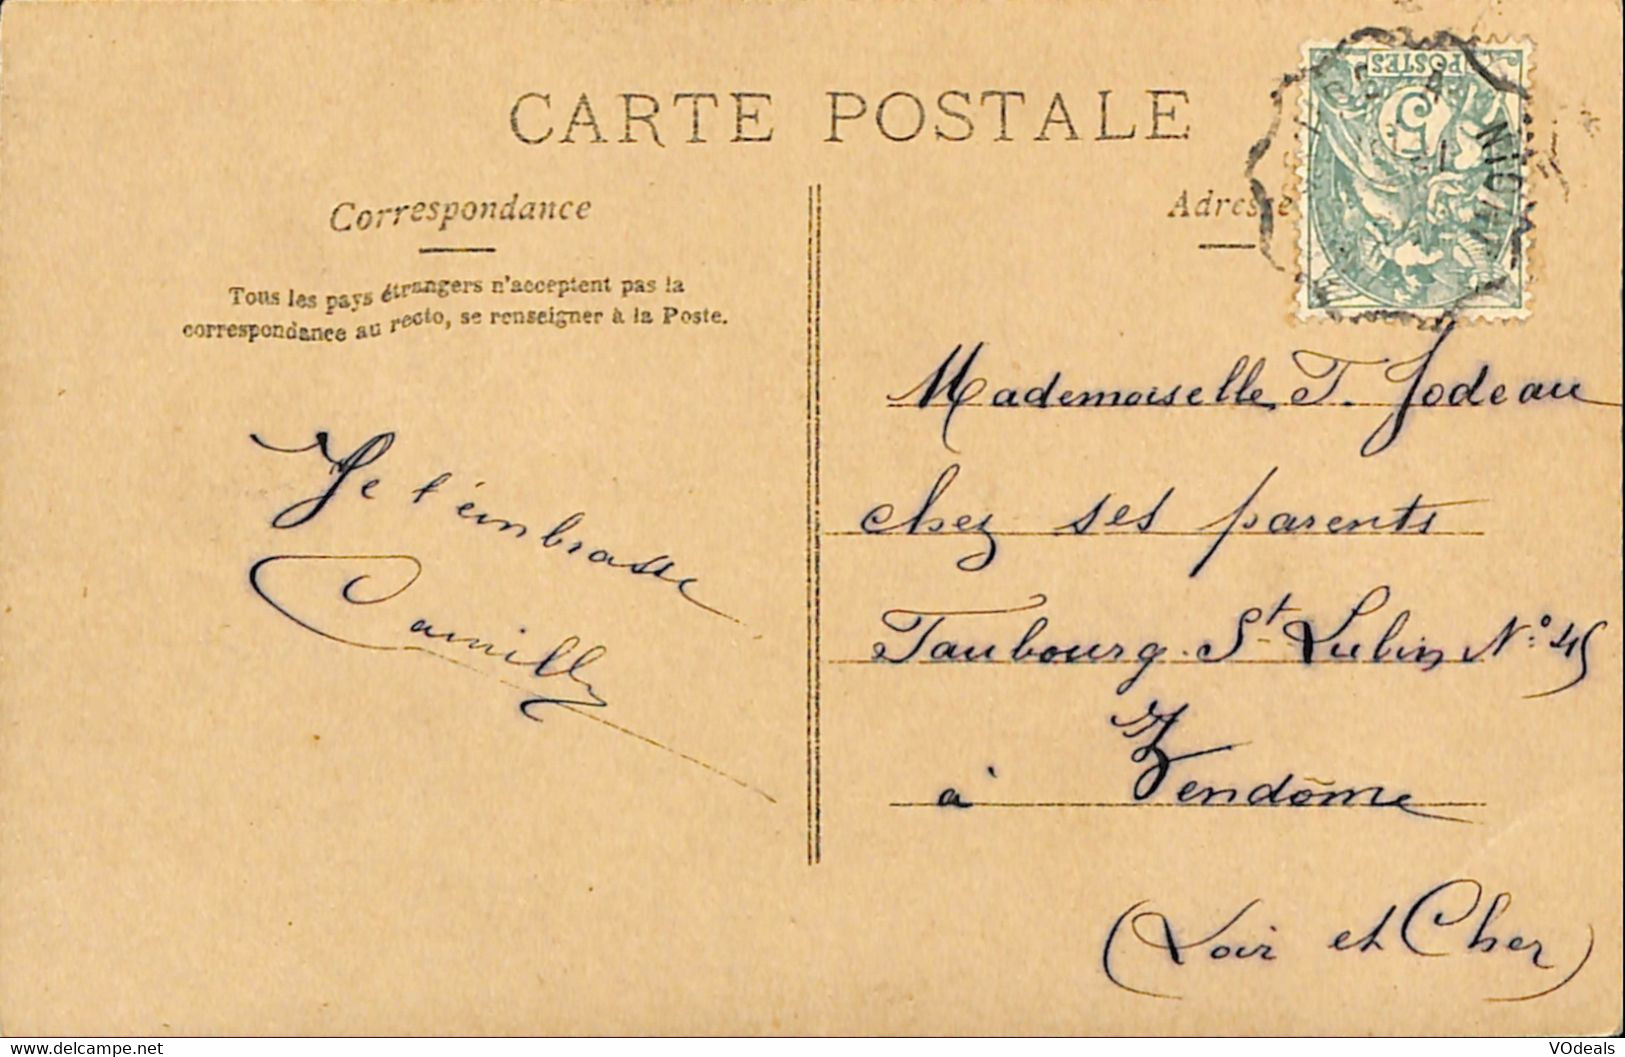 CARTE POSTALE
Correspondance
Tous les pays étrangers n'acceptent pas la
correspondance au recto, se renseigner à la Poste.
Je t'embrasse
Camilly
Adresse
POSTES
5
NIORT
Mademoiselle T. Jodeau
chez ses parents
Faubourg St Lubin N:° 45
à Vendôme
(Loir et Cher)
www.delcampe.net
VOdeals